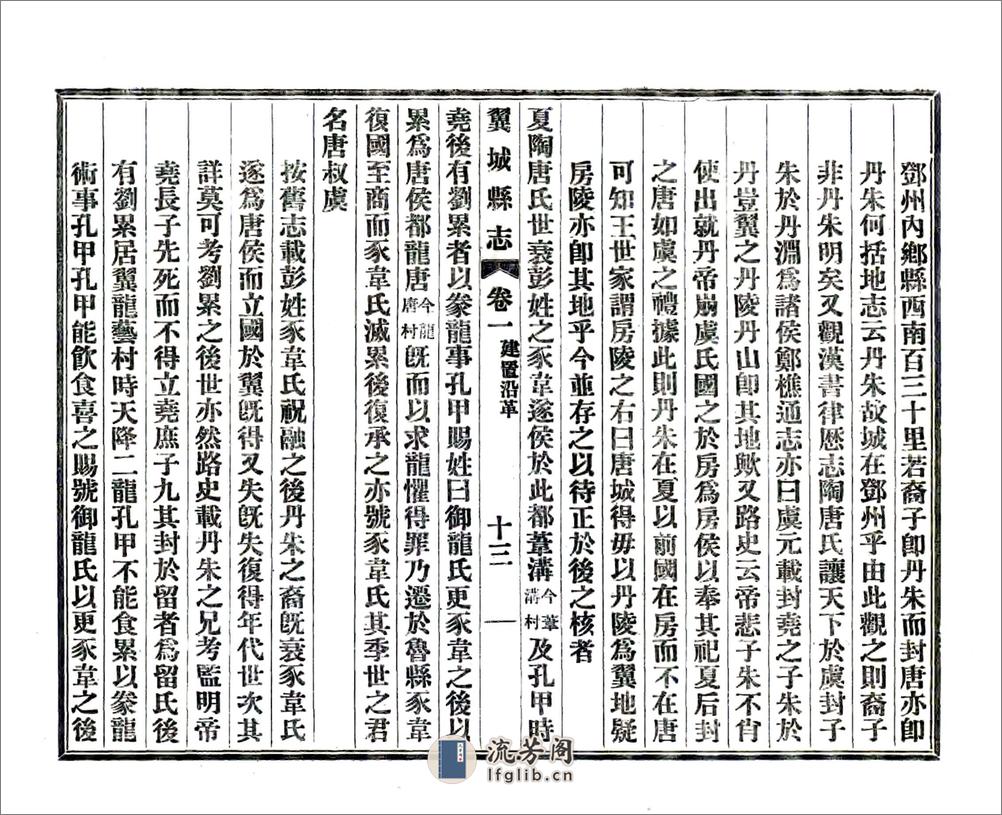 鄧州內鄉縣西南百三十里若裔子卽丹朱而封唐亦卽
丹朱何括地志云丹朱故城在鄧州乎由此觀之則裔子
非丹朱明矣又觀漢書律歷志陶唐氏讓天下於虞封子
朱於丹淵爲諸侯鄭樵通志亦曰虞元載封堯之子朱於
丹豈翼之丹陵丹山卽其地歟又路史云帝悲子朱不肖
使出就丹帝崩虞氏國之於房爲房侯以奉其祀夏后封
之唐如虞之禮據此則丹朱在夏以前國在房而不在唐
可知王世家謂房陵之右曰唐城得毋以丹陵爲翼地疑
房陵亦卽其地乎今並存之以待正於後之核者
夏陶唐氏世衰彭姓之豕韋遂侯於此都葦溝今葦溝村及孔甲時
翼城縣志 卷一 建置沿革 十三
堯後有劉累者以豢龍事孔甲賜姓曰御龍氏更豕韋之後以
累爲唐侯都龍唐今龍唐村旣而以求龍懼得罪乃遷於魯縣豕韋
復國至商而豕韋氏滅累後復承之亦號豕韋氏其季世之君
名唐叔虞
按舊志載彭姓豕韋氏祝融之後丹朱之裔旣衰豕韋氏
遂爲唐侯而立國於翼旣得又失旣失復得年代世次其
詳莫可考劉累之後世亦然路史載丹朱之兄考監明帝
堯長子先死而不得立堯庶子九其封於留者爲留氏後
有劉累居翼龍藝村時天降二龍孔甲不能食累以豢龍
術事孔甲孔甲能飮食喜之賜號御龍氏以更豕韋之後
流芳阁
lfglib.cn